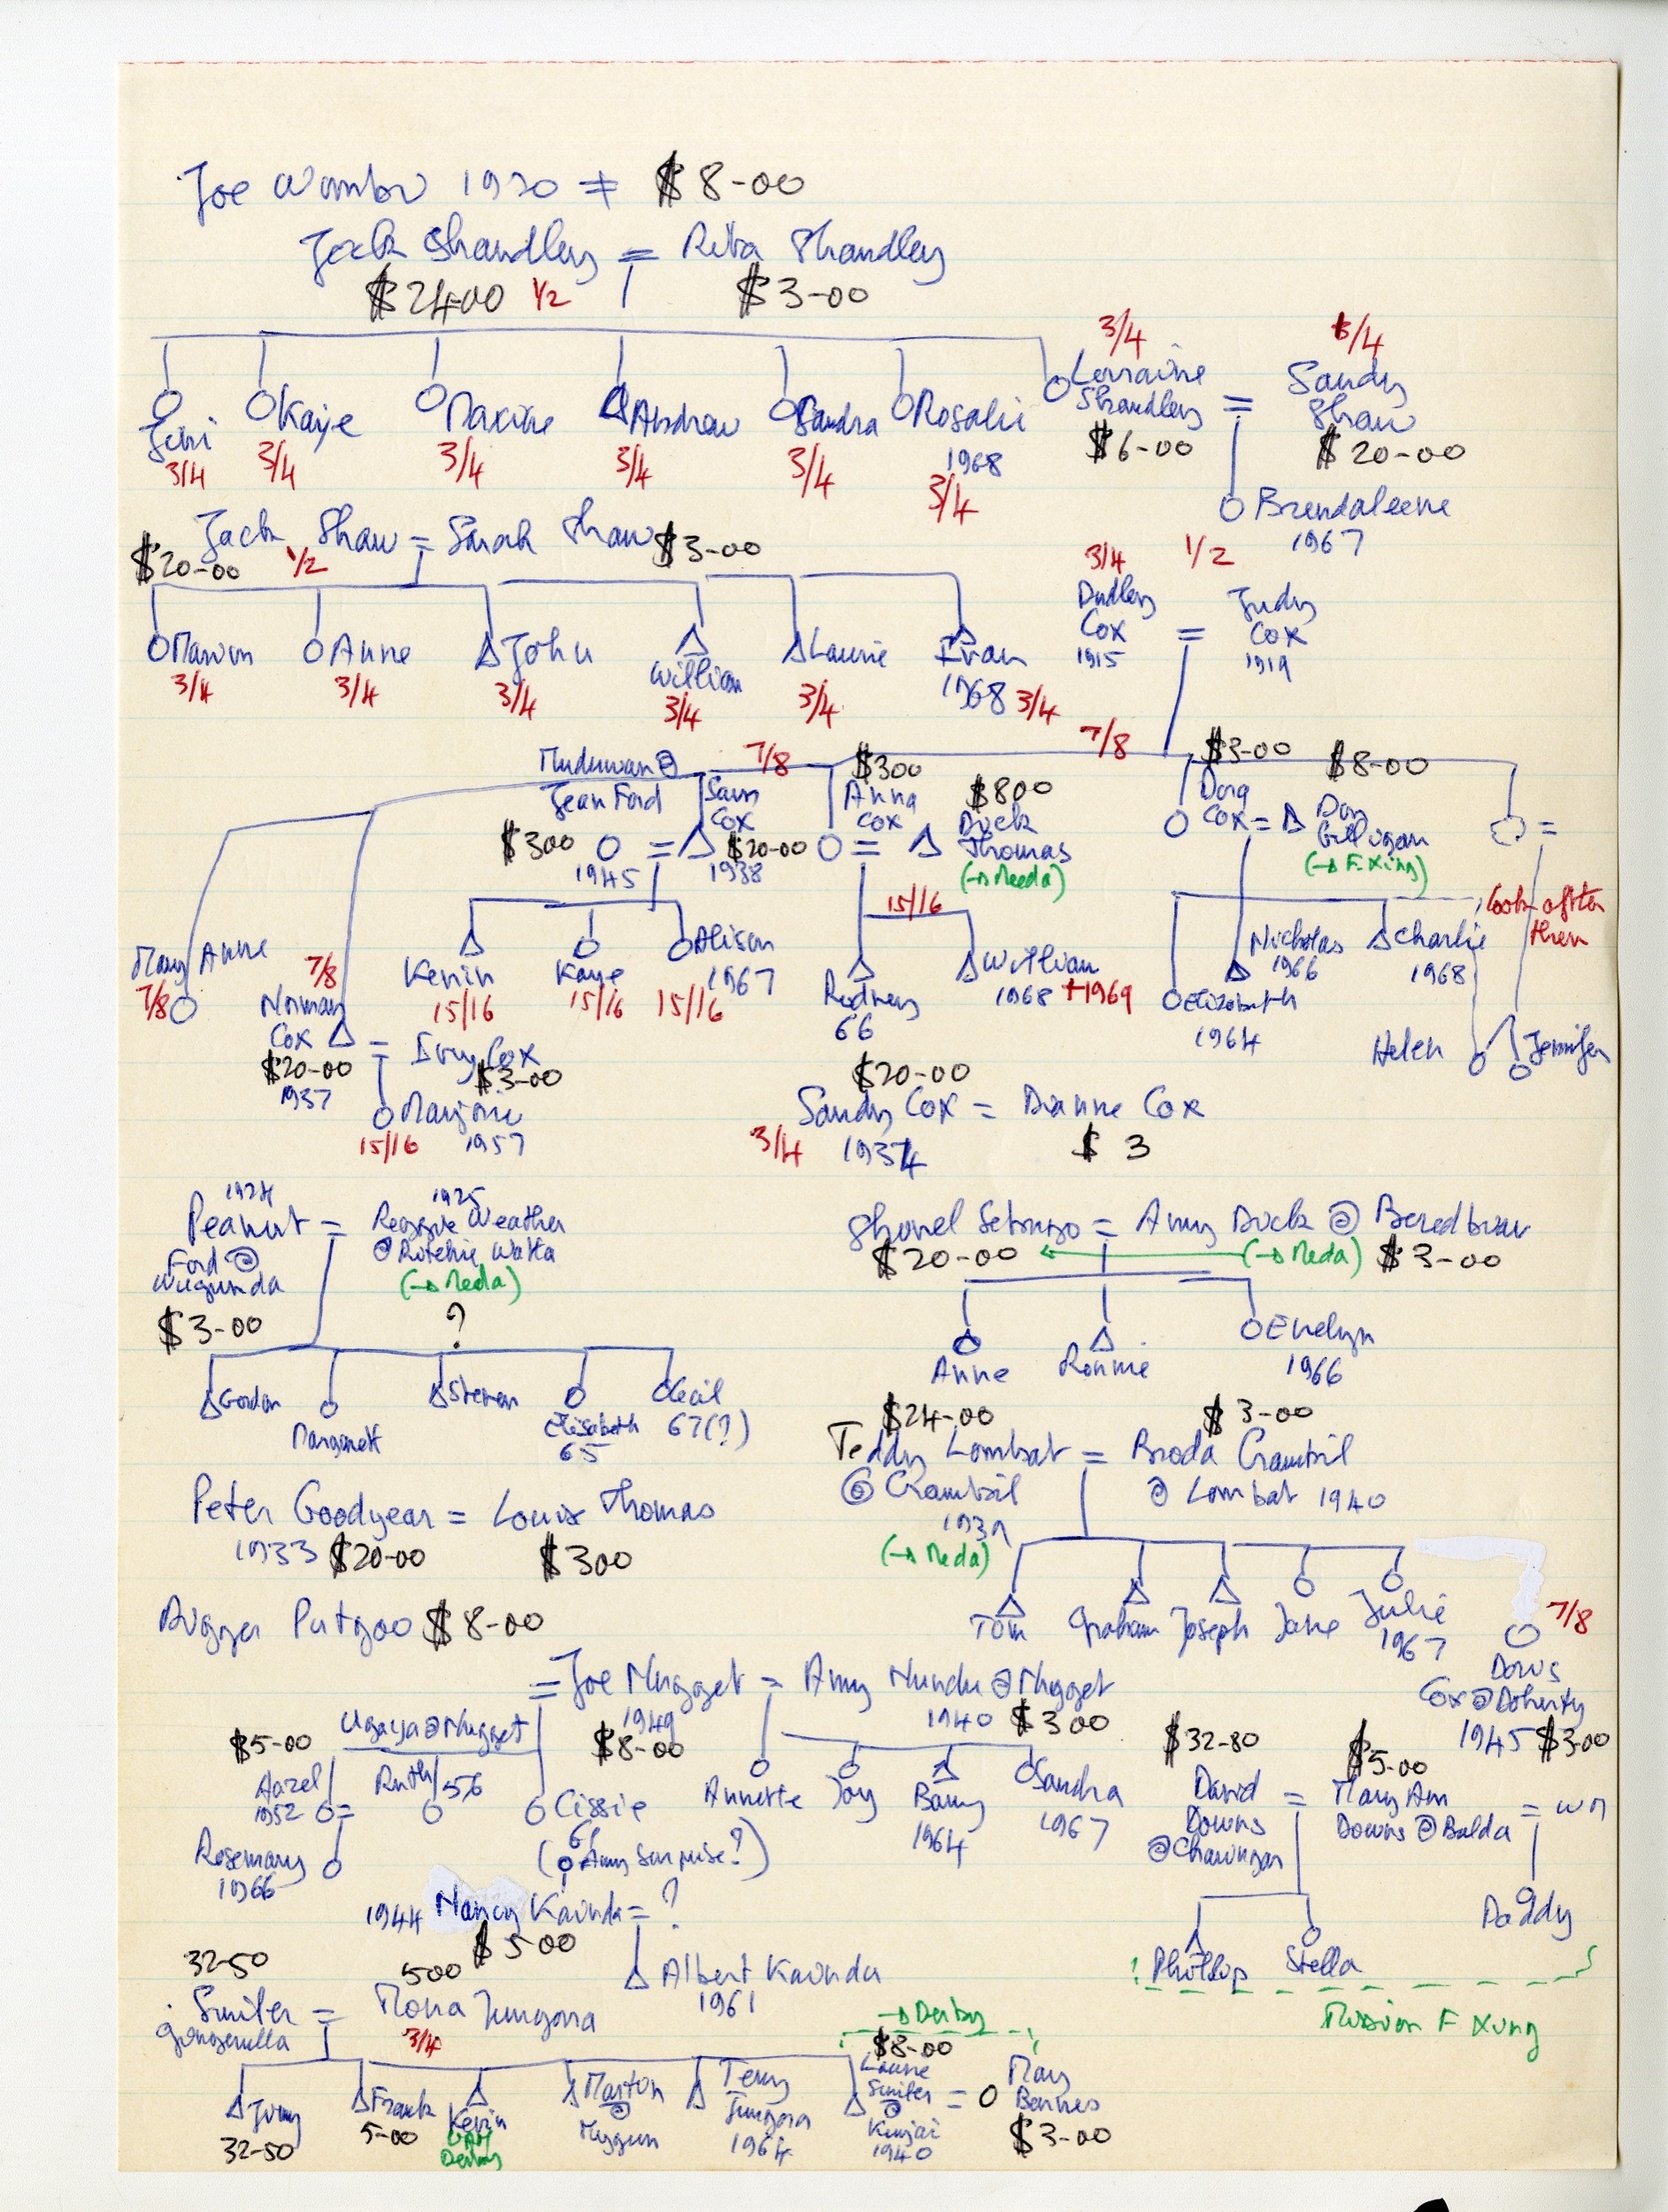 Joe 1930 ≠ $8-00
Jack Shandley = Rita Shandley
$24-00 1/2 $3-00
Jeni Kaye Maxine Andrew Sandra Rosalie Lorraine Shandley = Sandy Shaw
3/4 3/4 3/4 3/4 3/4 1968 3/4 3/4 $6-00 3/4 $20-00
Brendaleene
1967
Jack Shaw = Sarah Shaw $3-00
$20-00 1/2
Anne John William Laurie Ivan
3/4 3/4 3/4 3/4 3/4 1968 3/4
3/4 1/2
Dudley Cox 1915 = Judy Cox 1919
7/8 7/8
Jean Ford $3-00 1945 = Sam Cox $20-00 1938
$3-00 Anna Cox = $8-00 Dick Thomas (→ Meda)
$3-00 Dora Cox = $8-00 Don Gilligan (→ F. Xing)
=
look after them
15/16
Mary Anne 7/8
Kevin 15/16
Kaye 15/16
Alison 1967 15/16
Rodney 66
William 1968 †1969
Elizabeth 1964
Nicholas 1966
Charlie 1968
Helen Jennifer
7/8 Norman Cox $20-00 1937 = Ivy Cox $3-00
Marjorie
15/16 1957
$20-00
Sandy Cox = Dianne Cox
3/4 1934 $3
1924 1925
Peanut Ford @ Wugunda = Reggie Weather @ Ritchie Watta
(→ Meda)
$3-00 ?
Gordon Margarett Steven Elisabeth 65 Cecil 67(?)
Shovel = Amy Duck @
$20-00 (→ Meda) $3-00
Anne Ronnie Evelyn
1966
$24-00 $3-00
Teddy Lombat = Broda
@ @ Lombat 1940
1939
(→ Meda)
Tom Graham Joseph Jane Julie
1967
7/8
Doris
Cox @ Doherty
1945 $3-00
Peter Goodyear = Louis Thomas
1933 $20-00 $3-00
$8-00
= Joe Nugget = Amy Nundu @ Nugget
1949 1940 $3-00
$8-00
Ugaya @ Nugget
$5-00
Hazel 1952 = Ruth 56 Cissie 61
(Amy surprise?)
Rosemary
1966
Annette Joy Barry Sandra
1964 1967
$32-80 $5-00
David Downs @ Charungan = Mary Ann Downs @ Balda = WM
Phillip Stella Daddy
Mission F Xing
1944 Nancy Kaunda = ?
$5-00
Albert Kaunda
1961
32-50 500
Smiler = Mona Jungora
3/4
→ Derby
$8-00
Jimmy 32-50
Frank 5-00
Kevin Derby
Marton @
Terry Jungora 1964
Laurie Smiler @ Kunjai 1940 = Mary Barnes $3-00